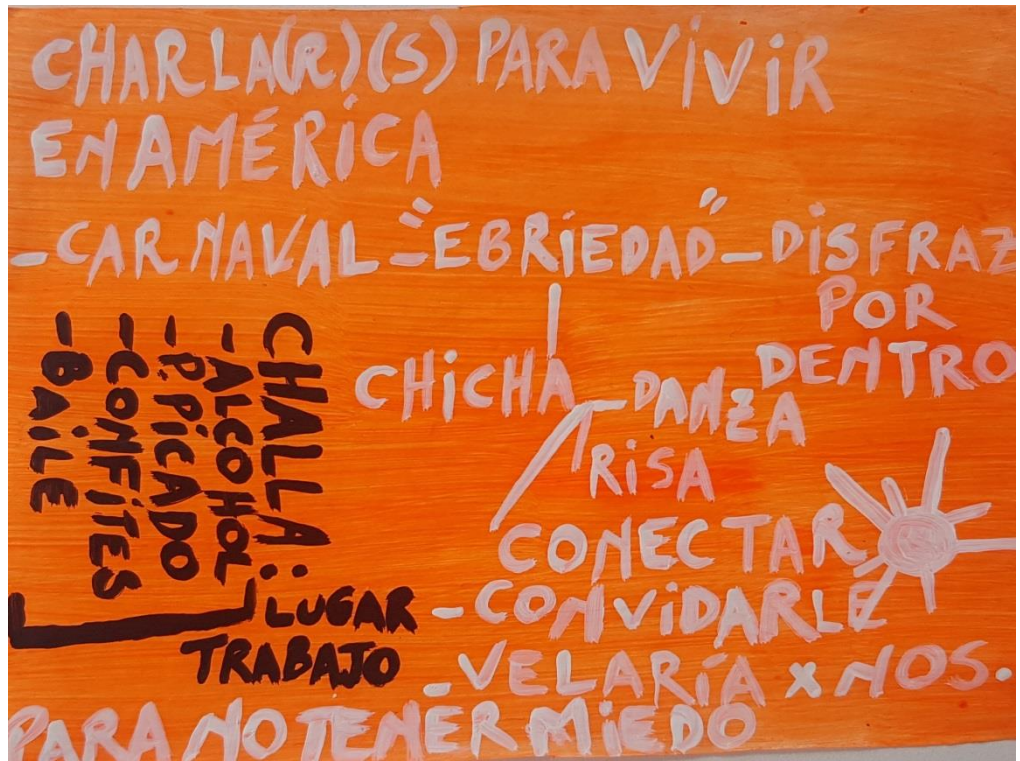 CHARLA(R)(S) PARA VIVIR
EN AMÉRICA
-CARNAVAL-"EBRIEDAD"-DISFRAZ
POR
DENTRO
CHICHA
-DANZA
RISA
CONECTAR
-CONVIDARLE
-VELARÍA x NOS.
PARA NO TENER MIEDO
CHALLA:
-ALCOHOL
-P.PICADO
-CONFITES
-BAILE
LUGAR
TRABAJO